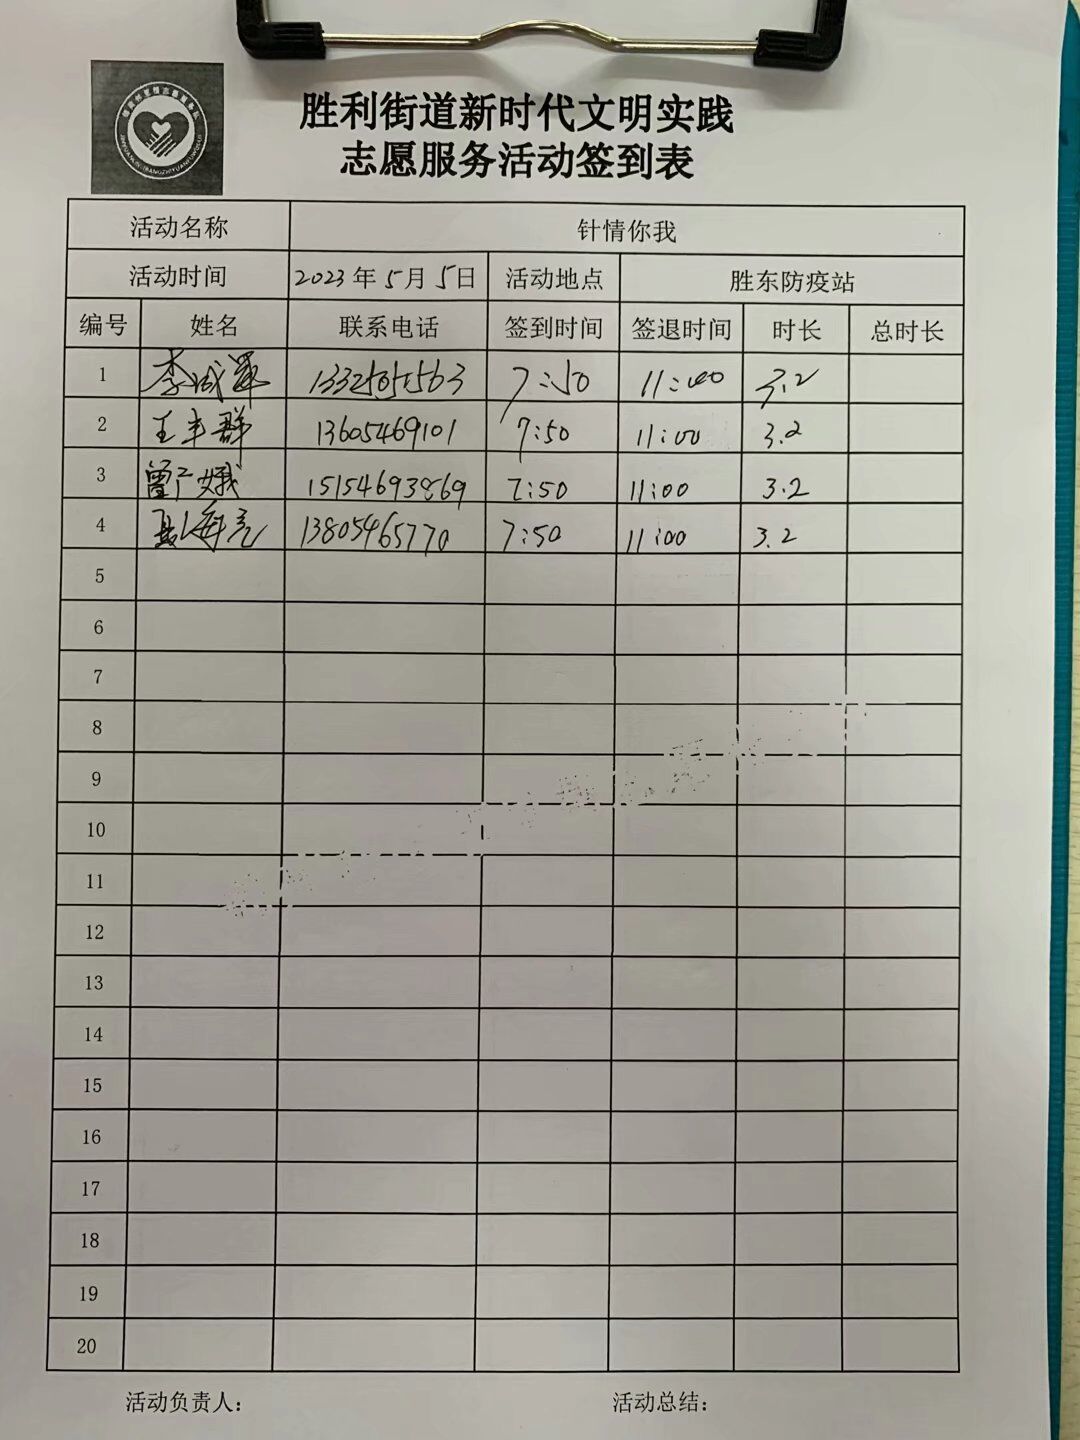 胜利街道新时代文明实践
志愿服务活动签到表
活动名称 针情你我
活动时间 2023年5月5日 活动地点 胜东防疫站
编号 姓名 联系电话 签到时间 签退时间 时长 总时长
1 李 7:50 11:00 3.2
2 王丰群 13605469101 7:50 11:00 3.2
3 曾广娥 15154693869 7:50 11:00 3.2
4 13805465770 7:50 11:00 3.2
5
6
7
8
9
10
11
12
13
14
15
16
17
18
19
20
活动负责人： 活动总结：